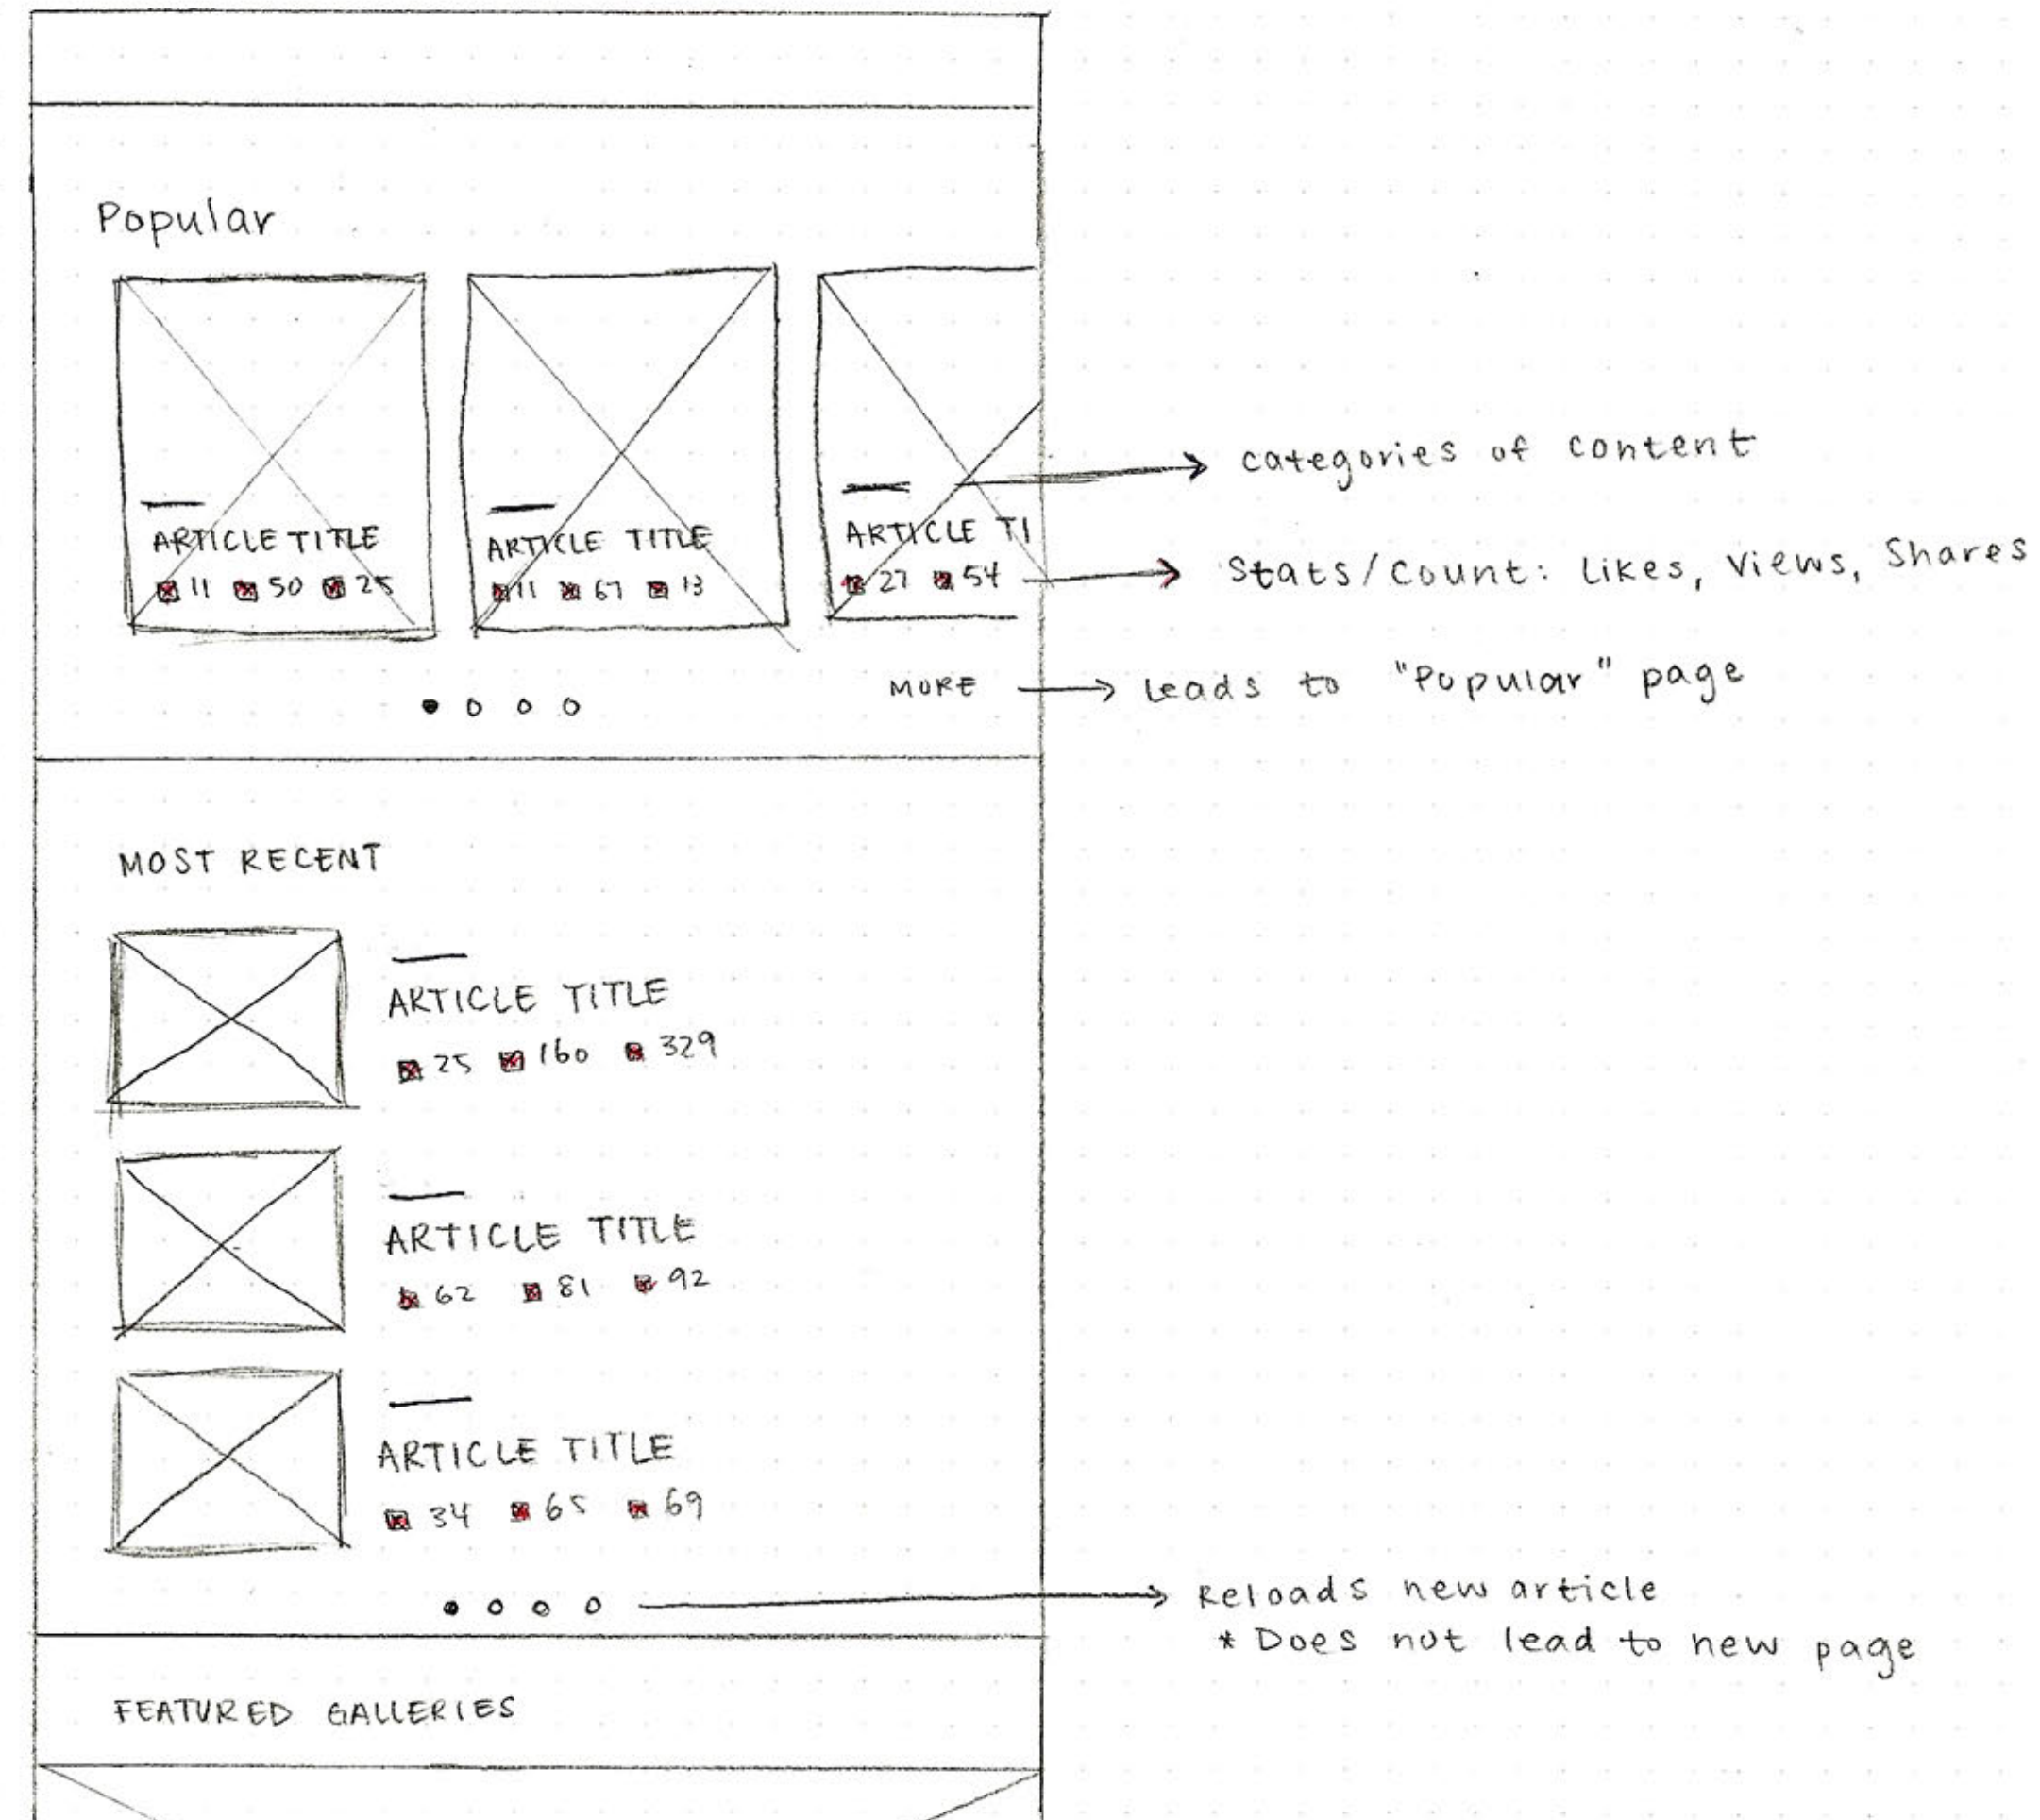 Popular
ARTICLE TITLE
11 50 25
ARTICLE TITLE
11 67 13
ARTICLE TI
27 54
categories of content
Stats/Count: Likes, Views, Shares
MORE
Leads to "Popular" page
MOST RECENT
ARTICLE TITLE
25 160 329
ARTICLE TITLE
62 81 92
ARTICLE TITLE
34 65 69
Reloads new article
* Does not lead to new page
FEATURED GALLERIES